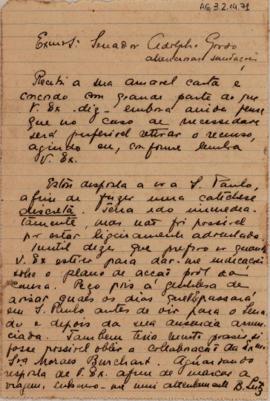 AG3.2.14.71
Exmo Sr. Senador Adolpho Gordo
attenciosas saudações
Recebi a sua amavel carta e
concordo com grande parte do que
V. Ex. diz embora ainda pense
que no caso de necessidade
será preferivel retirar o recurso,
agindo eu, conforme lembra
V. Ex.
Estou disposta a ir a S. Paulo,
afim de fazer uma catechese
discreta. Teria ido immedia-
tamente, mas não foi possivel
por estar ligeiramente adoentada.
Inutil dizer que prefiro ir quando
V. Ex estiver para dar-me indicações
sobre o plano de acção prol da
causa. Peço pois a gentileza de
avisar quaes os dias que passara
em S. Paulo antes de vir para o Sena-
do e depois da sua ausencia annun-
ciada. Tambem teria muito prazer, si
fosse possivel obter a collaboração da Exma
Sra Moraes Burchard. Aguardando
resposta de V. Ex. afim de marcar a
viagem, subscrevo-me mui attentamente B. Lutz